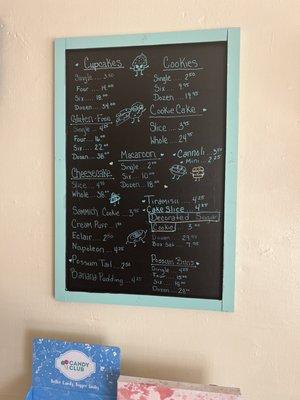 Cupcakes
Single .... 3.50
Four .... 14.00
Six .... 18.00
Dozen .... 34.00
Gluten-Free
Single .... 4.25
Four .... 16.00
Six .... 22.00
Dozen .... 38.00
Cheesecake
Single .... 4.25
Whole .... 38.00
Sammich Cookie .... 3.95
Cream Puff .... 1.00
Eclair .... 2.50
Napoleon .... 4.25
Possum Tail .. 2.50
Banana Pudding .... 4.25
Cookies
Single .... 2.50
Six .... 9.95
Dozen .... 19.95
Cookie Cake
Slice .... 3.95
Whole .... 24.95
Macaroon
Single .... 2.00
Six .... 10.00
Dozen .... 18.00
Cannoli ..
Mini .. 2.25
Tiramisu .... 4.25
Cake Slice .. 4.25
Decorated Sugar
Cookie
Dozen
Box Set .... 7.95
Possum Buns
Single .... 4.25
Four
Six
Dozen
CANDY
CLUB
Better Candy, Happier Smiles